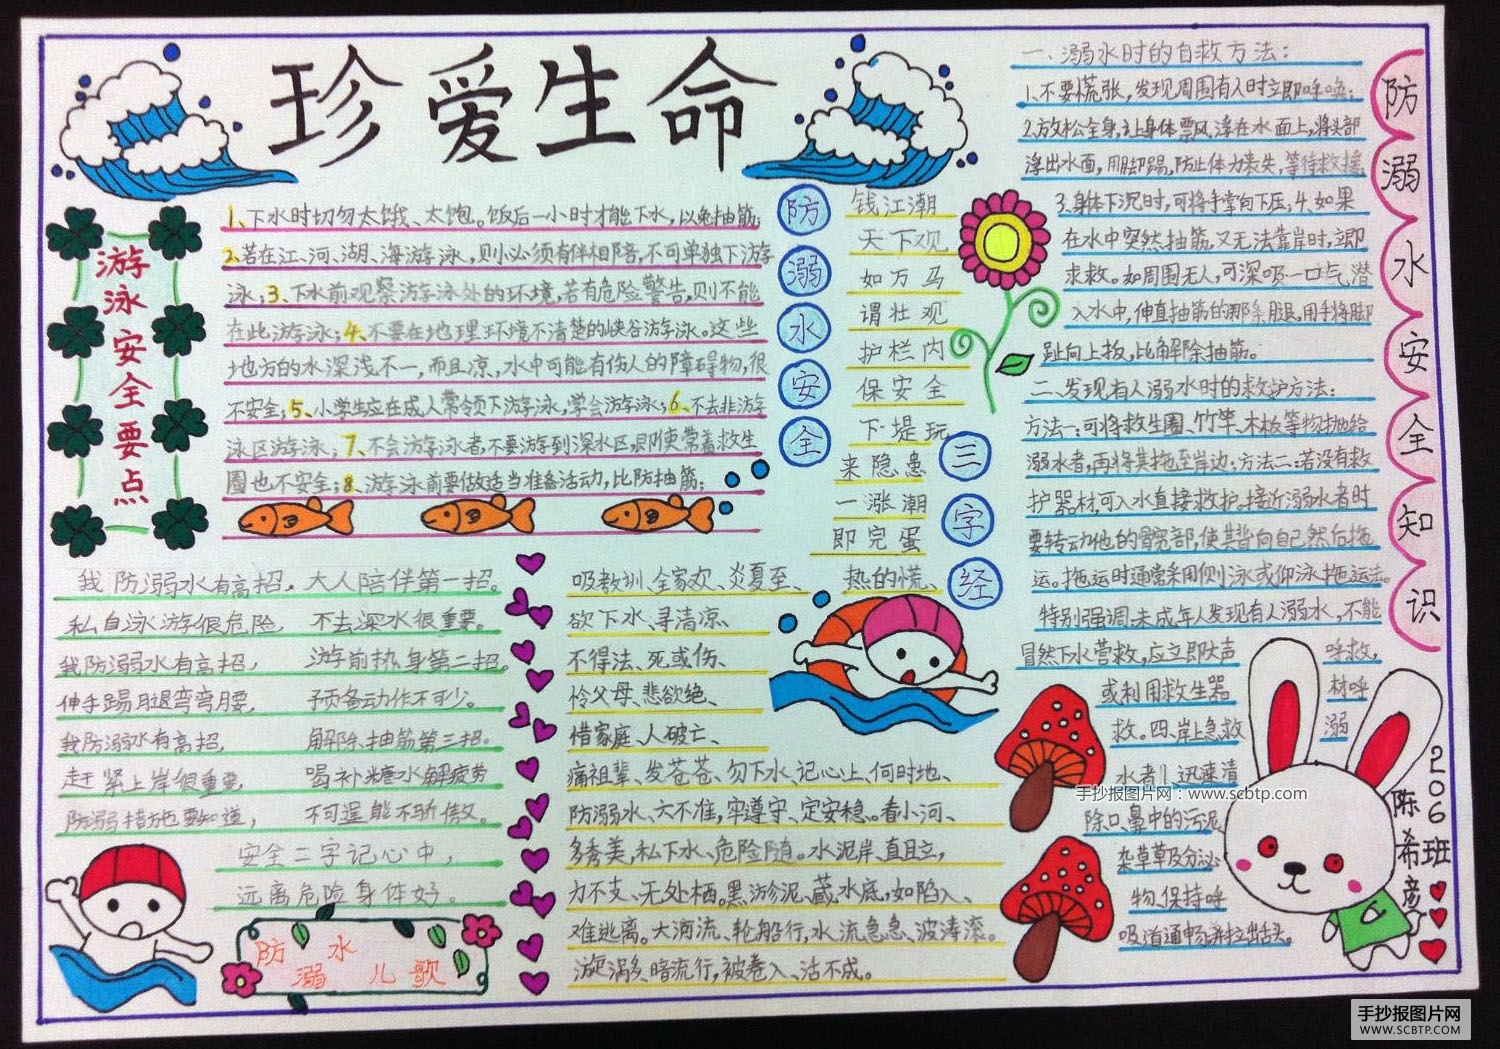 珍爱生命
游泳安全要点
1、下水时切勿太饿、太饱。饭后一小时才能下水,以免抽筋;
2、若在江、河、湖、海游泳,则必须有伴相陪,不可单独下游
泳;3、下水前观察游泳处的环境,若有危险警告,则不能
在此游泳;4、不要在地理环境不清楚的峡谷游泳。这些
地方的水深浅不一,而且凉,水中可能有伤人的障碍物,很
不安全;5、小学生应在成人带领下游泳,学会游泳;6、不去非游
泳区游泳;7、不会游泳者,不要游到深水区,即使带着救生
圈也不安全;8、游泳前要做适当准备活动,比防抽筋;
我防溺水有高招,大人陪伴第一招。
私自泳游很危险, 不去深水很重要。
我防溺水有高招, 游前热身第二招。
伸手踢腿弯弯腰, 预备动作不可少。
我防溺水有高招, 解除抽筋第三招。
赶紧上岸很重要, 喝补糖水解疲劳
防溺措施要知道, 不可逞能不骄傲。
安全二字记心中,
远离危险身体好。
防溺水儿歌
防溺水安全
三字经
钱江潮
天下观
如万马
谓壮观
护栏内
保安全
下堤玩
来隐患
一涨潮
即完蛋
吸教训、全家欢、炎夏至、热的慌、
欲下水、寻清凉、
不得法、死或伤、
怜父母、悲欲绝、
惜家庭、人破亡、
痛祖辈、发苍苍、勿下水、记心上、何时地、
防溺水、六不准,牢遵守、定安稳。看小河、
多秀美,私下水、危险随。水泥岸、直且立,
力不支、无处栖。黑游泥、藏水底,如陷入、
难逃离。大河流、轮船行,水流急急、波涛滚。
漩涡多、暗流行,被卷入、活不成。
防溺水安全知识
一、溺水时的自救方法:
1、不要慌张,发现周围有人时立即呼唤;
2、放松全身,让身体飘浮在水面上,将头部
浮出水面,用脚踢,防止体力丧失,等待救援;
3、身体下沉时,可将手掌向下压;4、如果
在水中突然抽筋,又无法靠岸时,立即
求救。如周围无人,可深吸一口气潜
入水中,伸直抽筋的那条腿,用手将脚
趾向上扳,比解除抽筋。
二、发现有人溺水时的救护方法:
方法一:可将救生圈、竹竿、木板等物抛给
溺水者,再将其拖至岸边;方法二:若没有救
护器材,可入水直接救护。接近溺水者时
要转动他的髋部,使其背向自己然后拖
运。拖运时通常采用侧泳或仰泳拖运法。
特别强调:未成年人发现有人溺水,不能
冒然下水营救,应立即大声 呼救,
或利用救生器 材呼
救。四、岸上急救 溺
水者1、迅速清
除口、鼻中的污泥、
杂草草及分泌
物,保持呼
吸道通畅,并拉出舌头。
206班
陈希彦
手抄报图片网:www.scbtp.com
手抄报图片网
WWW.SCBTP.COM